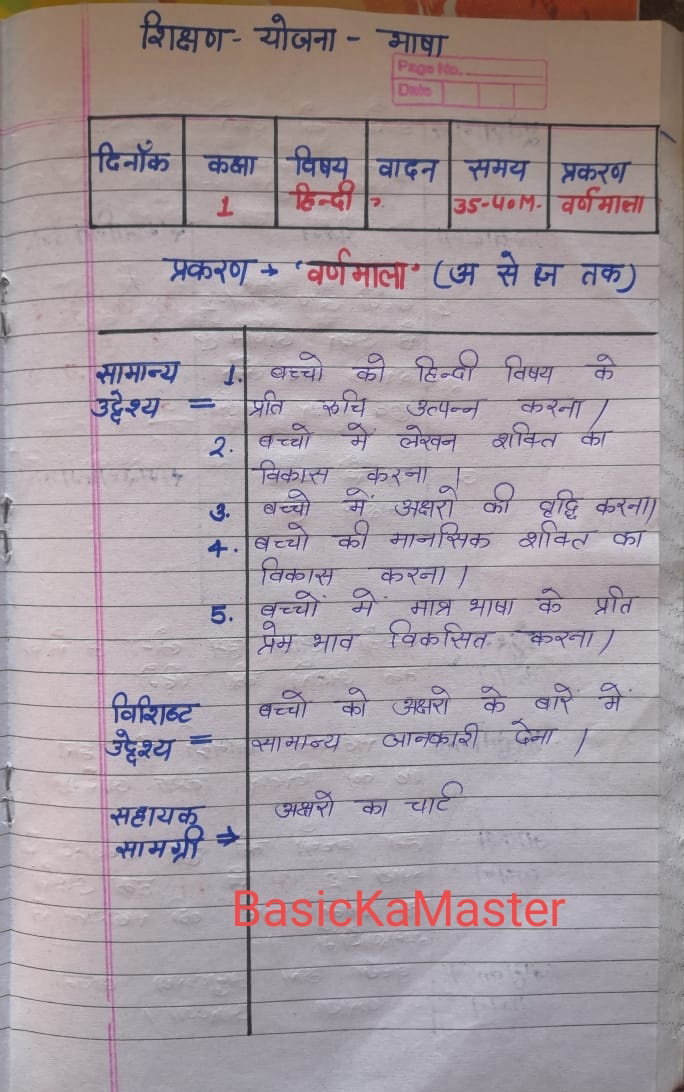 शिक्षण - योजना - भाषा
Page No.
Date
दिनाँक कक्षा विषय वादन समय प्रकरण
1 हिन्दी ?. 35-40M. वर्णमाला
प्रकरण → 'वर्णमाला' (अ से ज्ञ तक)
सामान्य 1. बच्चो को हिन्दी विषय के
उद्देश्य = प्रति रुचि उत्पन्न करना /
2. बच्चो में लेखन शक्ति का
विकास करना |
3. बच्चो में अक्षरो की वृद्धि करना/
4. बच्चो की मानसिक शक्ति का
विकास करना /
5. बच्चों में मात्र भाषा के प्रति
प्रेम भाव विकसित करना /
विशिष्ट बच्चो को अक्षरो के बारें में
उद्देश्य = सामान्य जानकारी देना /
सहायक अक्षरो का चार्ट
सामग्री ⇒
BasicKaMaster